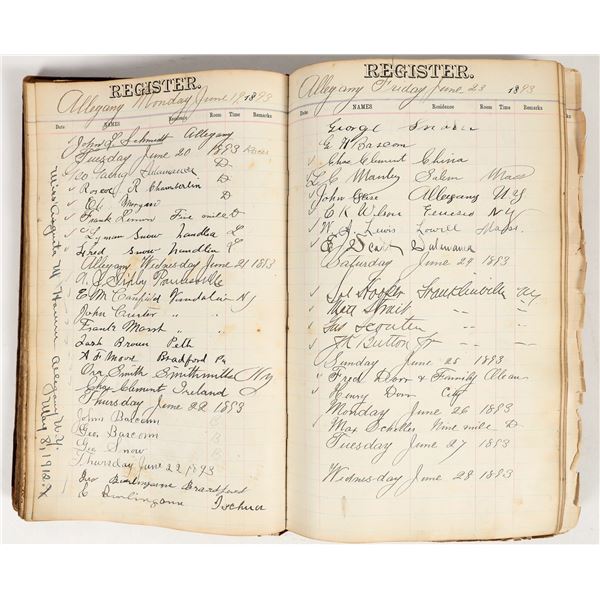 REGISTER.
Allegany Monday June 19, 1893
Date NAMES Residence Room Time Remarks
John L Schmidt Allegany
Tuesday June 20 1893
Geo D
Roscoe R Chamberlin D
Morgan D
Frank Limon Five mile D
Lyman Snow Handlea L
Fred Snow Handlea L
Allegany Wednesday June 21 1893
E M Canfield Vandalia NY
John Carter " "
Frank Marsh " "
Zach Brown
A F Moore Bradford Pa
Ora Smith Smithmills N.Y
Chas Clement Ireland
Thursday June 22 1893
John Bascom
Geo. Bascom
Geo Snow
Thursday June 22 1893
Geo Burlingame Bradford
E Burlingame Ischua
Miss Augusta M. Allegany N.Y.
May 8, 1912.
REGISTER.
Allegany Friday June 23 1893
Date NAMES Residence Room Time Remarks
George
G H Bascom
Chas Clement China
L. C. Manley Salem Mass
John Case Allegany N Y
C K Wilson N.Y.
Lewis Lowell Mass.
Saturday June 24 1893
Sol Hooker Franklinville NY
Matt Strait " "
Gus Scouten " "
J H Button Jr " "
Sunday June 25 1893
Fred Dorr & Family Olean
Henry Dorr City
Monday June 26 1893
Max Schiller Nine mile D.
Tuesday June 27 1893
Wednesday June 28 1893